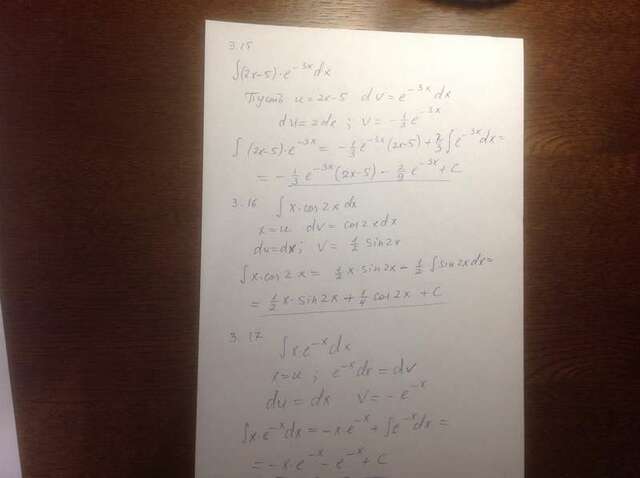 3.15
∫(2x-5)·e^{-3x}dx
Пусть u = 2x-5 dv = e^{-3x}dx
du = 2dx ; v = -1/3 e^{-3x}
∫(2x-5)·e^{-3x} = -1/3 e^{-3x}(2x-5) + 2/3 ∫e^{-3x}dx =
= -1/3 e^{-3x}(2x-5) - 2/9 e^{-3x} + C
3.16 ∫x·cos2xdx
x = u dv = cos2xdx
du = dx ; v = 1/2 sin2x
∫x·cos2x = 1/2 x·sin2x - 1/2 ∫sin2xdx =
= 1/2 x·sin2x + 1/4 cos2x + C
3.17
∫x·e^{-x}dx
x = u ; e^{-x}dx = dv
du = dx v = -e^{-x}
∫x·e^{-x}dx = -x·e^{-x} + ∫e^{-x}dx =
= -x·e^{-x} - e^{-x} + C